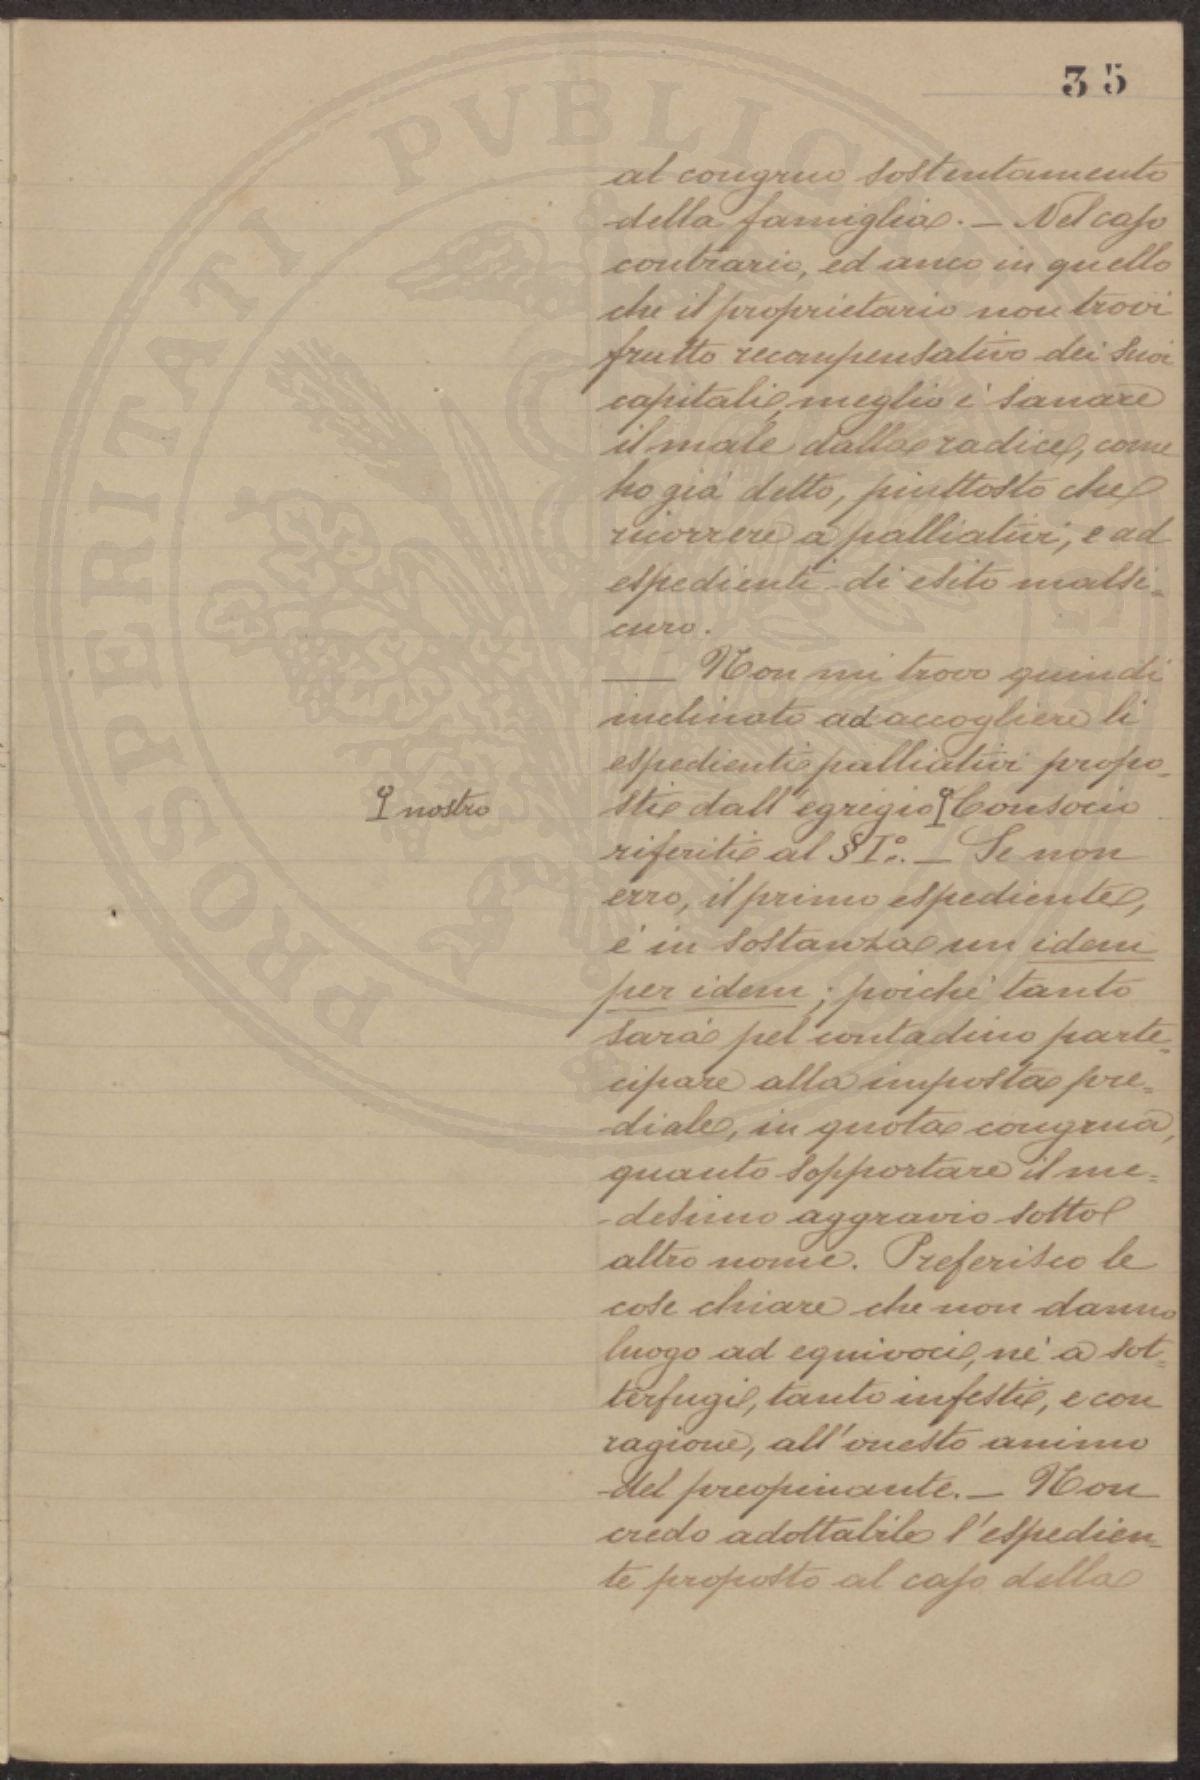 35
al congruo sostentamento
della famiglia. — Nel caso
contrario, ed anco in quello
che il proprietario non trovi
frutto recompensativo dei suoi
capitali, meglio è sanare
il male dalla radice, come
ho già detto, piuttosto che
ricorrere a palliativi, e ad
espedienti di esito malsi=
curo.
— Non mi trovo quindi
inclinato ad accogliere li
espedienti palliativi propo=
sti dall'egregio Consocio
nostro
riferiti al § I°. — Se non
erro, il primo espediente,
è in sostanza un idem
per idem; poichè tanto
sarà pel contadino parte=
cipare alla imposta pre=
diale, in quota congrua,
quanto sopportare il me=
desimo aggravio sotto
altro nome. Preferisco le
cose chiare che non danno
luogo ad equivoci, nè a sot=
terfugi, tanto infesti, e con
ragione, all'onesto animo
del preopinante. — Non
credo adottabile l'espedien=
te proposto al caso della
PROSPERITATI PVBLICAE